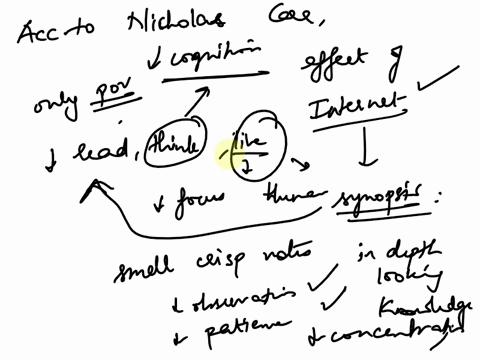 Acc to Nicholas Carr,
↓ cognition
effect of
Internet
only pov
↓ read, think, live
↓ focus
human
synopsis :
small crisp notes
in depth
looking
↓ observation
Knowledge
↓ patience
↓ concentration